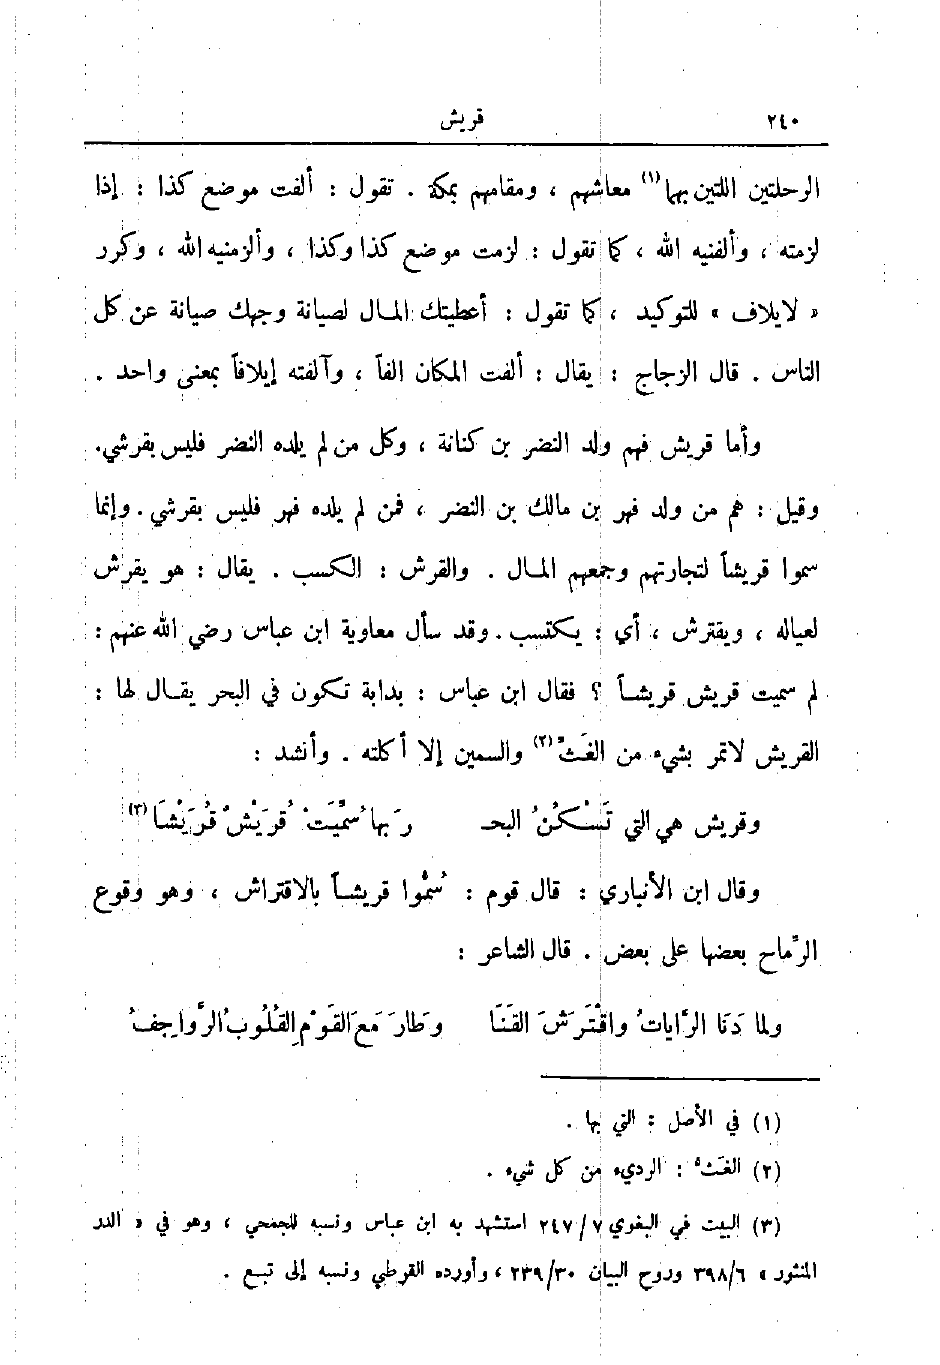 ٢٤٠ قريش
الرحلتين اللتين بهما(١) معاشهم ، ومقامهم بمكة . تقول : ألفت موضع كذا : إذا
لزمته ، وألفنيه الله ، كما تقول : لزمت موضع كذا وكذا ، وألزمنيه الله ، وكرر
« لايلاف » للتوكيد ، كما تقول : أعطيتك المال لصيانة وجهك صيانة عن كل
الناس . قال الزجاج : يقال : ألفت المكان الفاً ، وآلفته إيلافاً بمعنى واحد .
وأما قريش فهم ولد النضر بن كنانة ، وكل من لم يلده النضر فليس بقرشي.
وقيل : هم من ولد فهر بن مالك بن النضر ، فمن لم يلده فهر فليس بقرشي . وإنما
سموا قريشاً لتجارتهم وجمعهم المال . والقرش : الكسب . يقال : هو يقرش
لعياله ، ويقترش ، أي : يكتسب . وقد سأل معاوية ابن عباس رضي الله عنهم :
لم سميت قريش قريشاً ؟ فقال ابن عباس : بدابة تكون في البحر يقال لها :
القريش لاتمر بشيء من الغَثِّ(٢) والسمين إلا أكلته . وأنشد :
وقريش هي التي تَسْكُنُ البحـ رَ بها سُمِّيَتْ قُرَيْشٌ قُرَيْشَا(٣)
وقال ابن الأنباري : قال قوم : سُمُّوا قريشاً بالاقتراش ، وهو وقوع
الرِّماح بعضها على بعض . قال الشاعر :
ولما دَنَا الرَّاياتُ واقْتَرَشَ القَنَا وطَارَ مَعَ القَوْمِ القُلُوبُ الرَّواجِفُ
(١) في الأصل : التي بها .
(٢) الغَثُّ : الرديء من كل شيء .
(٣) البيت في البغوي ٢٤٧/٧ استشهد به ابن عباس ونسبه للجمحي ، وهو في « الدر
المنثور » ٣٩٨/٦ وروح البيان ٢٣٩/٣٠ ، وأورده القرطبي ونسبه إلى تبع .